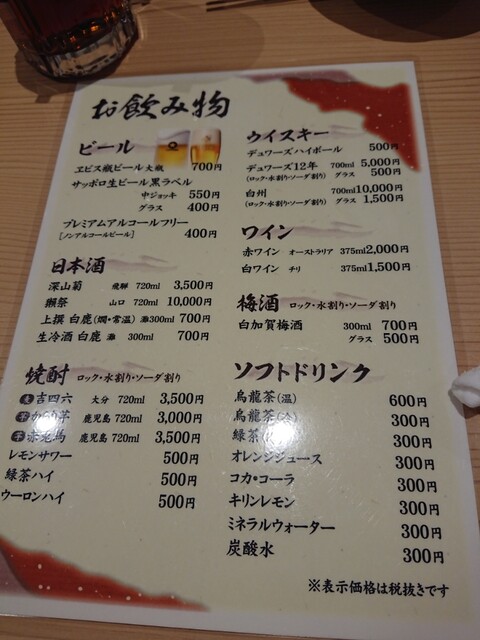 お飲み物
ビール
ヱビス瓶ビール 大瓶 700円
サッポロ生ビール黒ラベル
中ジョッキ 550円
グラス 400円
プレミアムアルコールフリー
[ノンアルコールビール] 400円
日本酒
深山菊 飛騨 720ml 3,500円
獺祭 山口 720ml 10,000円
上撰 白鹿(燗・常温) 灘300ml 700円
生冷酒 白鹿 灘 300ml 700円
焼酎 ロック・水割り・ソーダ割り
麦 吉四六 大分 720ml 3,500円
芋 鹿児島 720ml 3,000円
芋 赤兎馬 鹿児島 720ml 3,500円
レモンサワー 500円
緑茶ハイ 500円
ウーロンハイ 500円
ウイスキー
デュワーズ ハイボール 500円
デュワーズ12年 700ml 5,000円
(ロック・水割り・ソーダ割り) グラス 500円
白州 700ml 10,000円
(ロック・水割り・ソーダ割り) グラス 1,500円
ワイン
赤ワイン オーストラリア 375ml 2,000円
白ワイン チリ 375ml 1,500円
梅酒 ロック・水割り・ソーダ割り
白加賀梅酒 300ml 700円
グラス 500円
ソフトドリンク
烏龍茶(温) 600円
烏龍茶(冷) 300円
緑茶 300円
オレンジジュース 300円
コカ・コーラ 300円
キリンレモン 300円
ミネラルウォーター 300円
炭酸水 300円
※表示価格は税抜きです